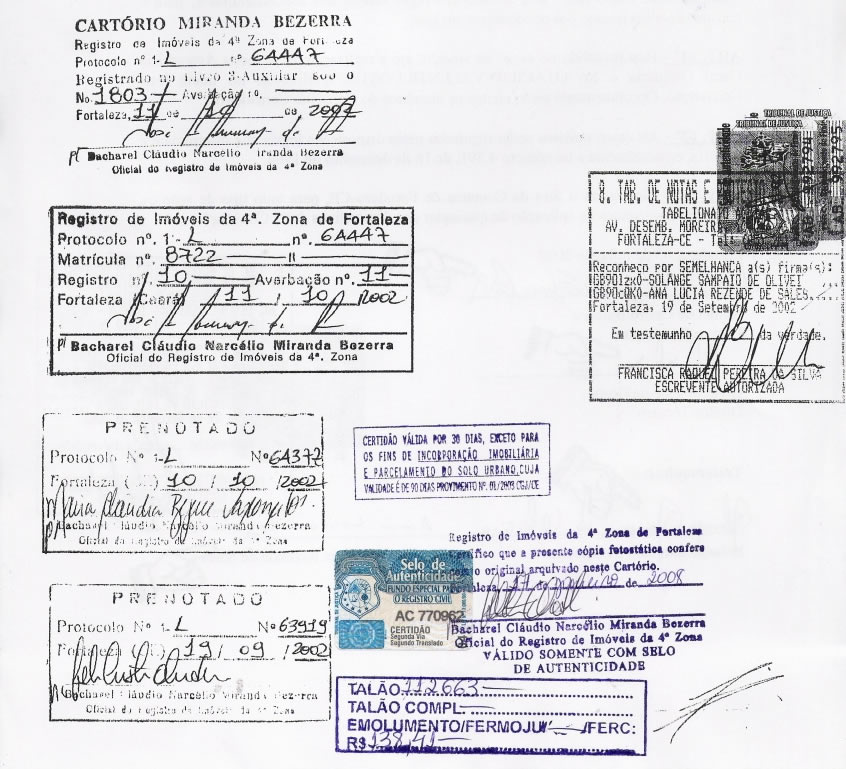 CARTÓRIO MIRANDA BEZERRA
Registro de Imóveis da 4ª Zona de Fortaleza
Protocolo nº 1-L nº. 64447
Registrado no Livro 3-Auxiliar sob o
No. 1803 Averbação no.
Fortaleza, 11 de 10 de 2002
Bacharel Cláudio Narcelio Miranda Bezerra
Oficial do Registro de Imóveis da 4ª Zona
Registro de Imóveis da 4ª. Zona de Fortaleza
Protocolo nº. 1-L nº. 64447
Matrícula nº. 8722
Registro nº. 10 Averbação nº. 11
Fortaleza (Ceará) 11 / 10 /2002
p/ Bacharel Cláudio Narcélio Miranda Bezerra
Oficial do Registro de Imóveis da 4ª. Zona
TRIBUNAL DE JUSTIÇA
TRIBUNAL DE JUSTIÇA
8. TAB. DE NOTAS E
TABELIONATO
AV. DESEMB. MOREIRA,
FORTALEZA-CE -
Reconheco por SEMELHANCA a(s) firma(s):
SOLANGE SAMPAIO DE OLIVEI
ANA LUCIA REZENDE DE SALES.....
Fortaleza, 19 de Setembro de 2002
Em testemunho da verdade.
FRANCISCA RAQUEL PEREIRA DA SILVA
ESCREVENTE AUTORIZADA
PRENOTADO
Protocolo Nº 1-L Nº 64372
Fortaleza (CE) 10 / 10 /2002
Bacharel Cláudio Narcelio Miranda Bezerra
Oficial do Registro de Imóveis da 4ª Zona
CERTIDÃO VÁLIDA POR 30 DIAS, EXCETO PARA
OS FINS DE INCORPORAÇÃO IMOBILIÁRIA
E PARCELAMENTO DO SOLO URBANO, CUJA
VALIDADE É DE 90 DIAS PROVIMENTO Nº. 01/2003 CGJ/CE
Registro de Imóveis da 4ª Zona de Fortaleza
Certifico que a presente cópia fotostática confere
com o original arquivado neste Cartório.
Fortaleza, de Janeiro de 2008
Bacharel Cláudio Narcélio Miranda Bezerra
Oficial do Registro de Imóveis da 4ª Zona
VÁLIDO SOMENTE COM SELO
DE AUTENTICIDADE
Selo de
Autenticidade
FUNDO ESPECIAL PARA
O REGISTRO CIVIL
AC 770962
CERTIDÃO
Segunda Via
Segundo Translado
PRENOTADO
Protocolo Nº 1-L Nº 63919
Fortaleza (CE) 19 / 09 /2002
Bacharel Cláudio Narcelio Miranda Bezerra
Oficial do Registro de Imóveis da 4ª Zona
TALÃO 112663
TALÃO COMPL.
EMOLUMENTO/FERMOJU /FERC:
R$ 138,41